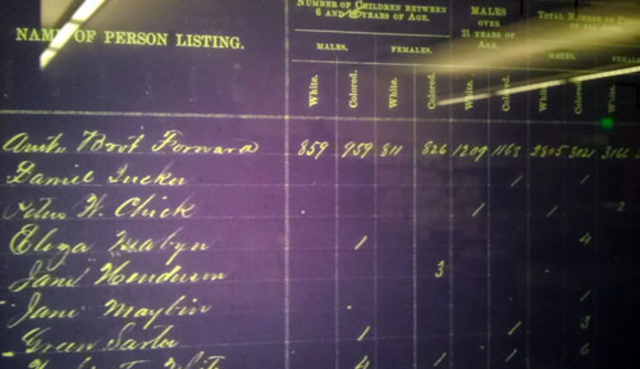 NUMBER OF CHILDREN BETWEEN 6 AND YEARS OF AGE.
MALES OVER 21 YEARS OF AGE.
TOTAL NUMBER OF
NAME OF PERSON LISTING.
MALES. FEMALES. MALES. FEMALE
White. Colored. White. Colored. White. Colored. White. Colored. White.
Brot Forward 859 959 811 826 1209 1163 2805 3121 3166
Daniel Tucker 1 1
W. Chick 1 1 2
Eliza 1 4
Jane Henderson 3
Jane Maybin 1
Green Sartor 1 1 3
White 4 1 1 6